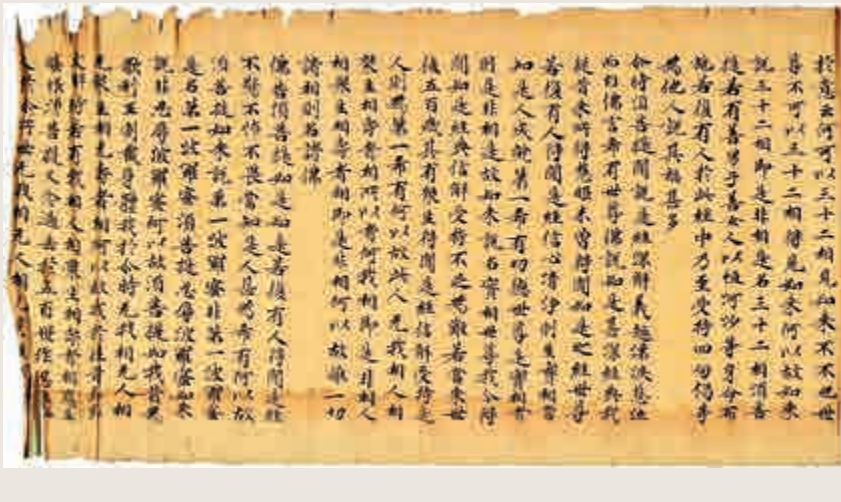 於意云何可以三十二相見如來不不也世
尊不可以三十二相得見如來何以故如來
說三十二相即是非相是名三十二相須菩
提若有善男子善女人以恒河沙等身命布
施若復有人於此經中乃至受持四句偈等
為他人說其福甚多
尒時須菩提聞說是經深解義趣涕淚悲泣
而白佛言希有世尊佛說如是甚深經典我
從昔來所得慧眼未曾得聞如是之經世尊
若復有人得聞是經信心清淨則生實相當
知是人成就第一希有功德世尊是實相者
則是非相是故如來說名實相世尊我今得
聞如是經典信解受持不足為難若當來世
後五百歲其有眾生得聞是經信解受持是
人則為第一希有何以故此人无我相人相
眾生相壽者相所以者何我相即是非相人
相眾生相壽者相即是非相何以故離一切
諸相則名諸佛
佛告須菩提如是如是若復有人得聞是經
不驚不怖不畏當知是人甚為希有何以故
須菩提如來說第一波羅蜜非第一波羅蜜
是名第一波羅蜜須菩提忍辱波羅蜜如來
說非忍辱波羅蜜何以故須菩提如我昔為
歌利王割截身體我於尒時无我相无人相
无眾生相无壽者相何以故我於往昔節節
支解時若有我相人相眾生相壽者相應生
瞋恨須菩提又念過去於五百世作忍辱
人於尒所世无我相无人相